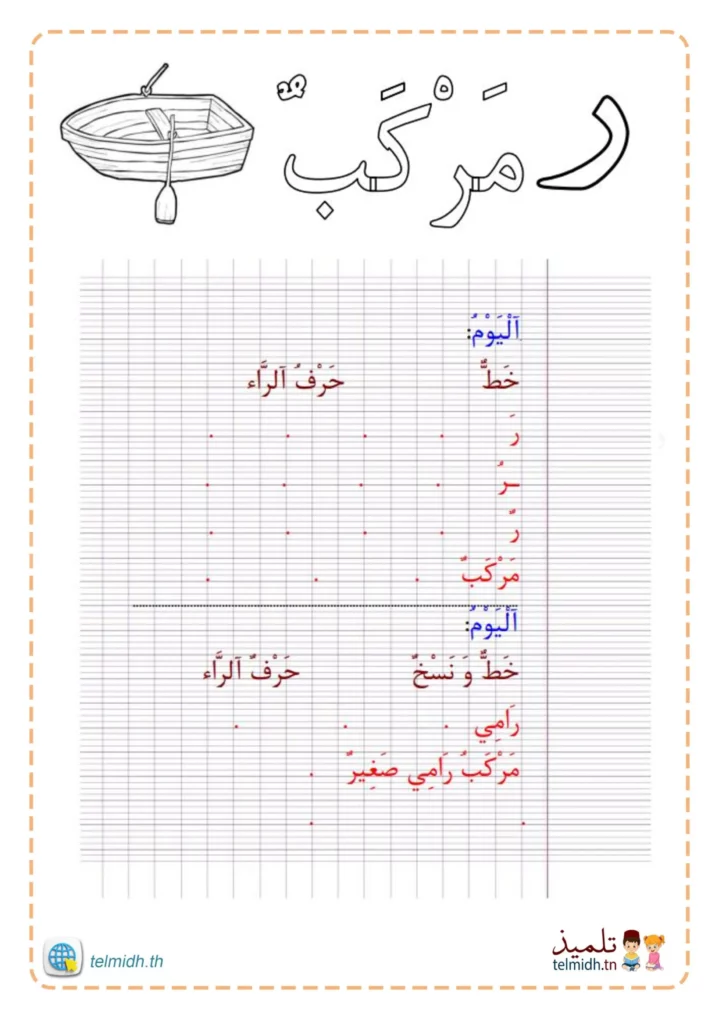 ر مَرْكَبٌ
اَلْيَوْمُ:
خَطٌّ حَرْفُ اَلرَّاء
رَ . . . .
ـرُ . . . .
رّ . . . .
مَرْكَبٌ . . .
اَلْيَوْمُ:
خَطٌّ وَ نَسْخٌ حَرْفُ اَلرَّاء
رَامِي . . .
مَرْكَبُ رَامِي صَغِيرٌ .
. .
telmidh.th
تلميذ
telmidh.tn